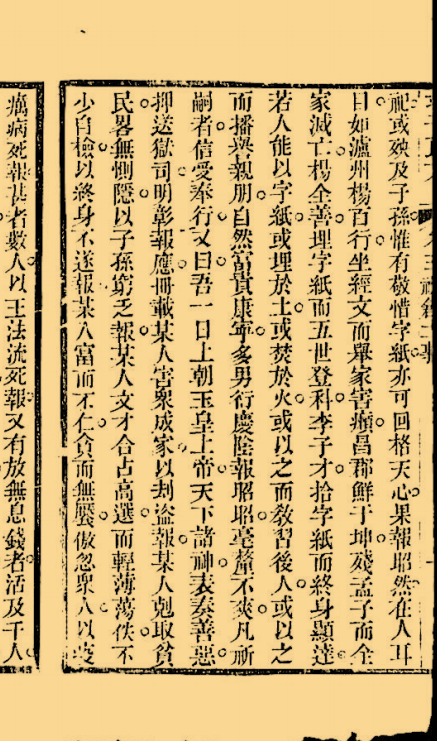 祀或殃及子孫惟有敬惜字紙亦可回格天心果報昭然在人耳
目如瀘州楊百行坐經文而舉家害癩昌郡鮮于坤殘孟子而全
家滅亡楊全善埋字紙而五世登科李子才拾字紙而終身顯達
若人能以字紙或埋於土或焚於火或以之而教習後人或以之
而播與親朋自然富貴康寧多男行慶陰報昭昭毫釐不爽凡祈
嗣者信受奉行又曰吾一日上朝玉皇上帝天下諸神表奏善惡
抑送獄司明彰報應冊載某人害衆成家以刦盜報某人剋取貧
民畧無惻隱以子孫窮乏報某人文才合占高選而輕薄蕩佚不
少自檢以終身不遂報某人富而不仁貪而無饜傲忽衆人以
癘病死報甚者數人以王法流死報又有放無息錢者活及千人